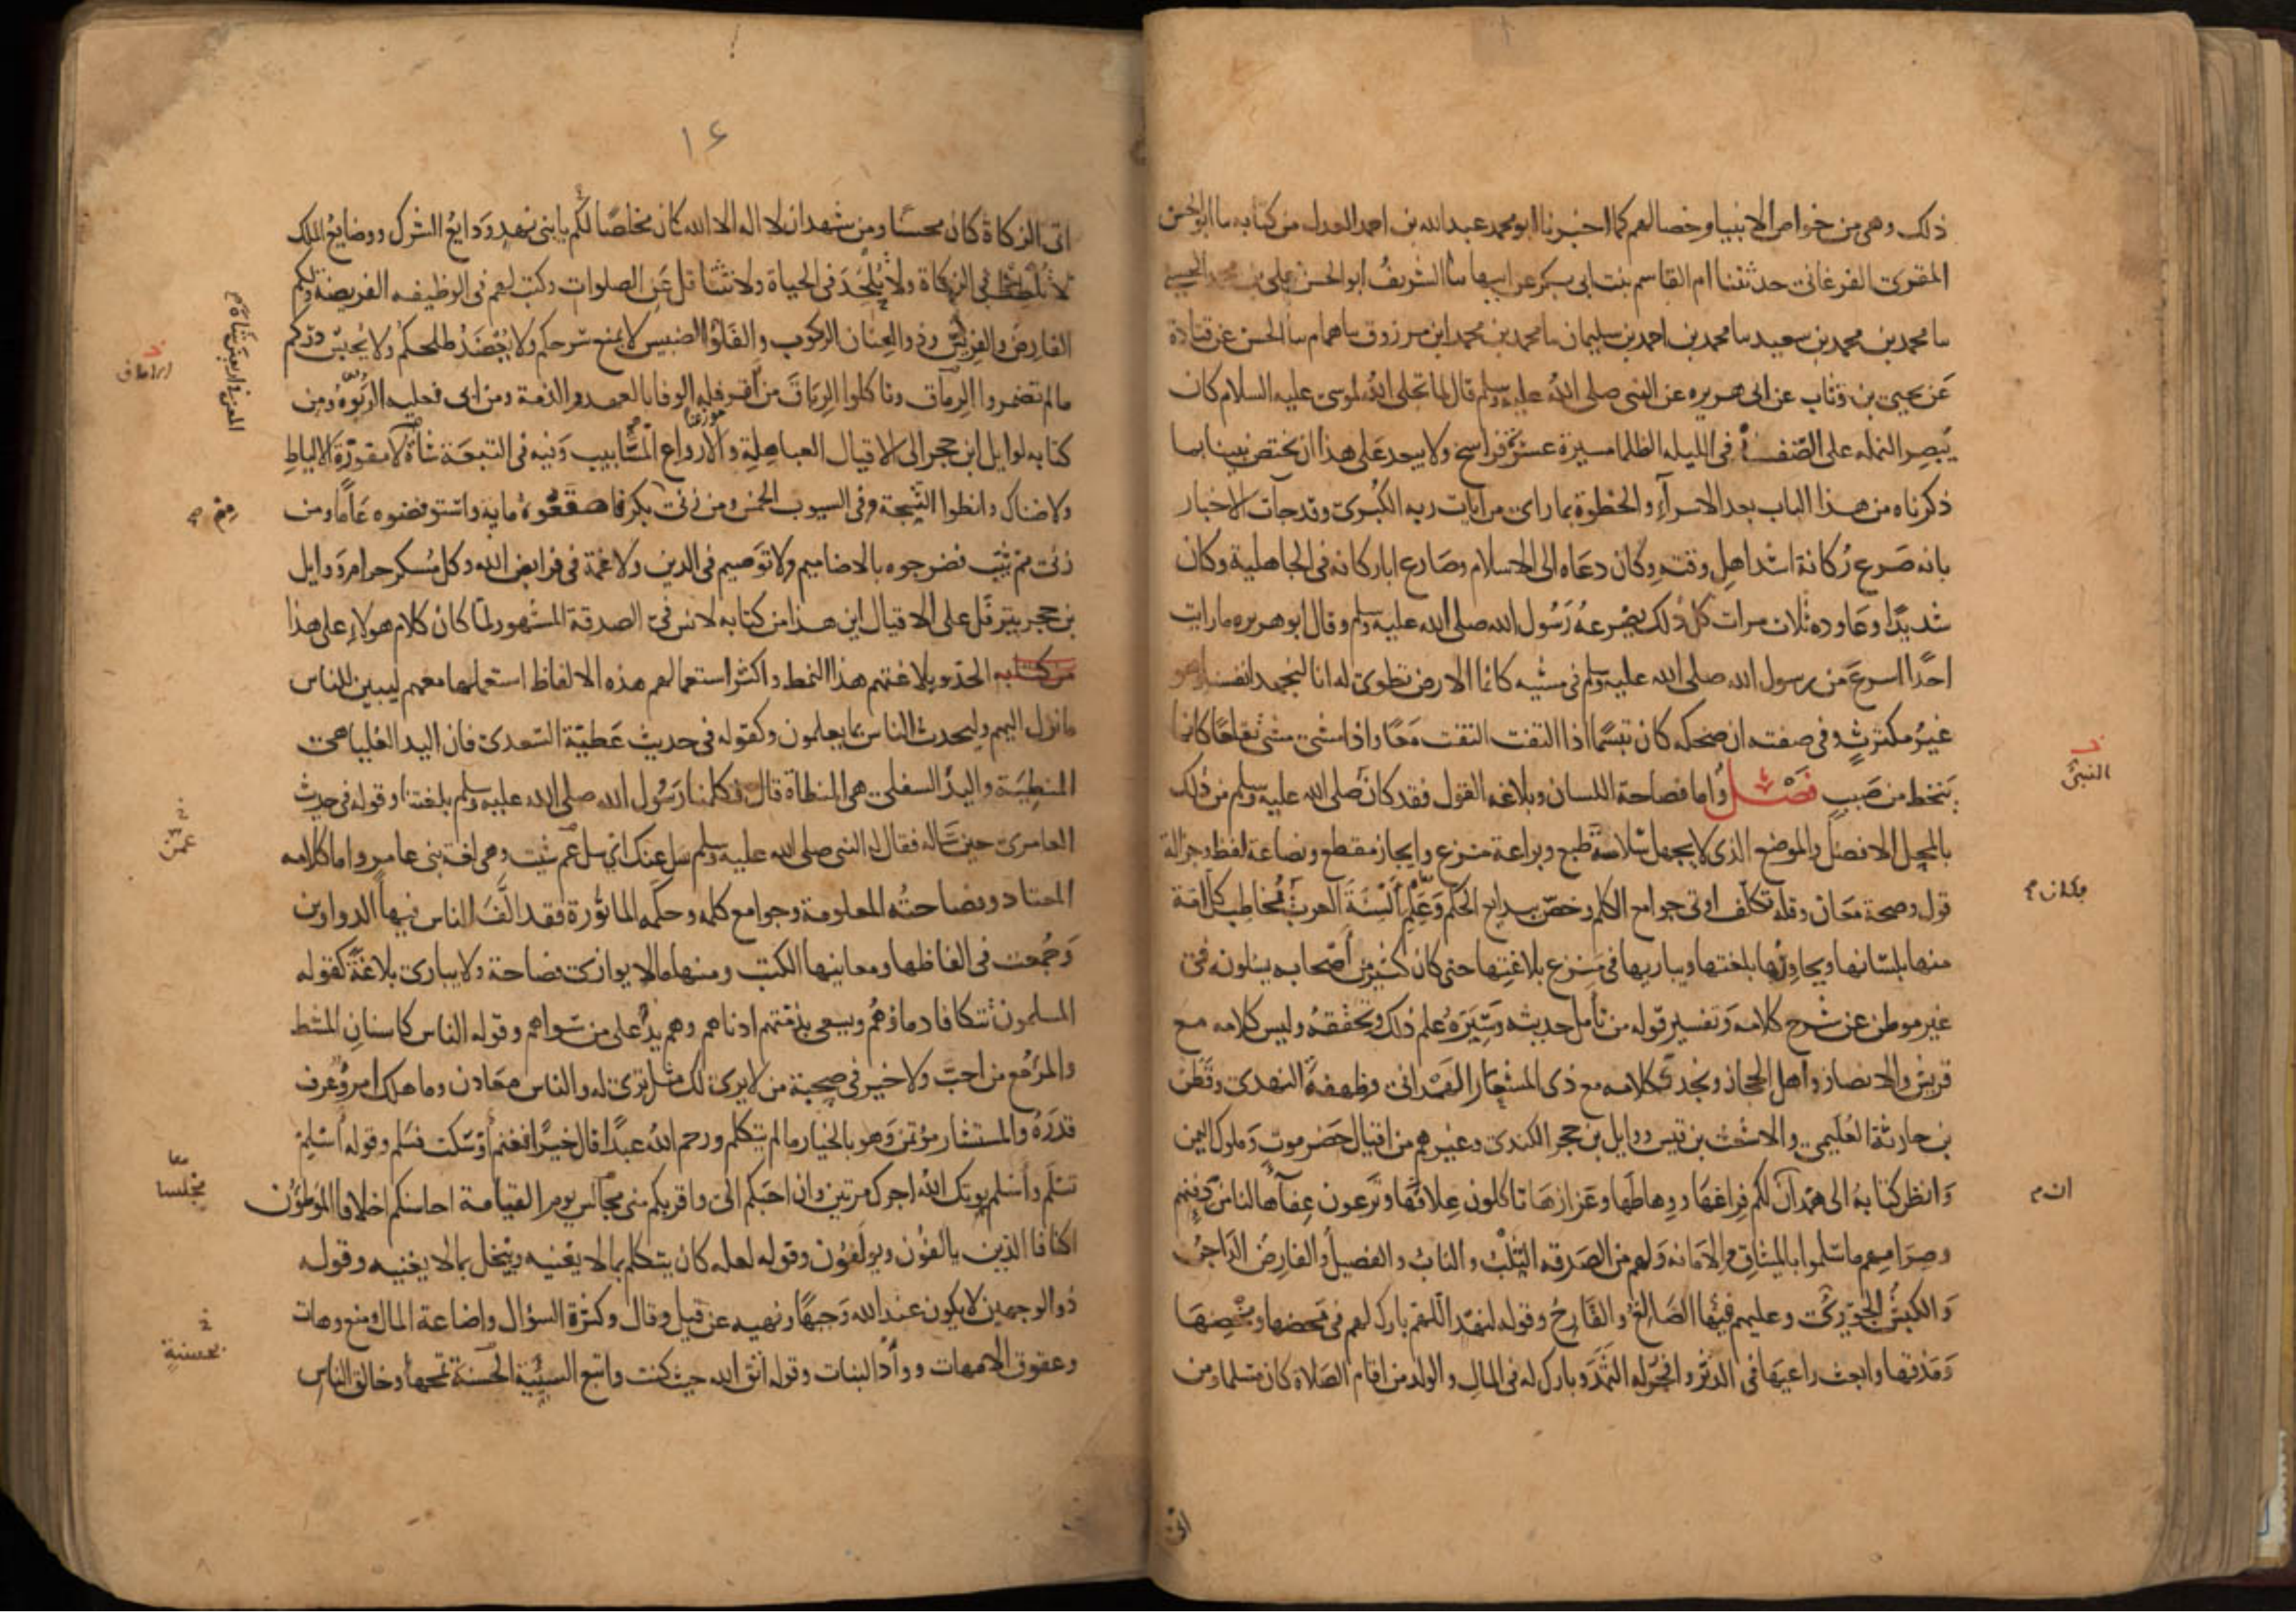 ذلك وهي من خواص الانبيا وخصالهم كما اخبرنا ابو محمد عبد الله بن احمد العدل من كتابه سا ابو الحسن
المقري الفرغاني حدثتنا ام القاسم بنت ابي بكر عن ابيها سا الشريف ابو الحسن علي بن محمد الحسني
سا محمد بن محمد بن سعيد سا محمد بن احمد بن سليمان سا محمد بن محمد ابن مرزوق سا همام سا الحسن عن قتادة
عن يحيى بن وثاب عن ابي هريره عن النبي صلى الله عليه وسلم قال لما تجلى الله لموسى عليه السلام كان
يبصر النمله على الصفا في الليله الظلما مسيرة عشرة فراسخ ولا يبعد على هذا ان يختص نبينا بما
ذكرناه من هذا الباب بعد الاسراء والحظوة بما راى من ايات ربه الكبرى وقد جآت الاخبار
بانه صرع ركانة اشد اهل وقته وكان دعاه الى الاسلام وصارع ابا ركانه في الجاهلية وكان
شديدا وعاوده ثلاث مرات كل ذلك يصرعه رسول الله صلى الله عليه وسلم وقال ابو هريره ما رايت
احدا اسرع من رسول الله صلى الله عليه وسلم في مشيه كانما الارض تطوى له انا لنجهد انفسنا وهو
غير مكترث وفي صفته ان ضحكه كان تبسما اذا التفت التفت معا واذا مشى مشى تقلعا كانما
ينحط من صبب فصل واما فصاحة اللسان وبلاغه القول فقد كان صلى الله عليه وسلم من ذلك
النبي
بالمحل الافضل والموضع الذي لا يجهل سلاسة طبع وبراعة منزع وايجاز مقطع ونصاعة لفظ وجزالة
قول وصحة معان وقلة تكلف اوتي جوامع الكلم وخص ببدايع الحكم وعلم السنة العرب فخاطب كل امة
فكان
منها بلسانها ويحاورها بلغتها ويباريها في منزع بلاغتها حتى كان كثير من اصحابه يسلونه في
غير موطن عن شرح كلامه وتفسير قوله من تأمل حديثه وسيره علم ذلك وتحققه وليس كلامه مع
قريش والانصار واهل الحجاز ونجد ككلامه مع ذي المشعار الهمداني وطهفة النهدي وقطن
بن حارثة العليمي والاشعث بن قيس ووايل بن حجر الكندي وغيرهم من اقيال حضرموت وملوك اليمن
وانظر كتابه الى همدان لكم فراعها ووهاطها وعزازها تاكلون علافها وترعون عفاءها لنا من دفئهم
ان
وصرامهم ما سلموا بالميثاق والامانه ولهم من الصدقه الثلب والناب والفصيل والفارض الداجن
والكبش الحوري وعليهم فيها الصالغ والقارح وقوله لنهد اللهم بارك لهم في محضها ومخضها
ومذقها وابعث راعيها في الدثر وافجر له الثمد وبارك له في المال والولد من اقام الصلاة كان مسلما ومن
اتى
١٤
اتى الزكاة كان محسنا ومن شهد ان لا اله الا الله كان مخلصا لكم يا بني نهد ودايع الشرك ووضايع الملك
لا تلطط في الزكاة ولا تلحد في الحياة ولا تتثاقل عن الصلوات وكتب لهم في الوظيفه الفريضة ولكم
الفارض والفريش وذو العنان الركوب والفلو الضبيس لا يمنع سرحكم ولا يعضد طلحكم ولا يحبس دركم
ما لم تضمروا الرماق وتاكلوا الرباق من اقر فله الوفا بالعهد والذمة ومن ابى فعليه الربوة ومن
كتابه لوايل ابن حجر الى الاقيال العباهلة والارواع المشابيب وفيه في التيعة شاة لا مقورة الالياط
ولا ضناك وانطوا الثبجة وفي السيوب الخمس ومن زنى بكر فاصقعوه مايه واستوفضوه عاما ومن
زنى مم ثيب فضرجوه بالاضاميم ولا توصيم في الدين ولا غمة في فرايض الله وكل مسكر حرام ووايل
بن حجر يترفل على الاقيال اين هذا من كتابه لانس في الصدقة المشهور لما كان كلام هولاء على هذا
من كتابه الحد وبلاغتهم هذا النمط واكثر استعمالهم هذه الالفاظ استعملها معهم ليبين للناس
ما نزل اليهم وليحدث الناس بما يعلمون وكقوله في حديث عطية السعدي فان اليد العليا هي
المنطية واليد السفلى هي المنطاة قال فكلمنا رسول الله صلى الله عليه وسلم بلغتنا وقوله في حديث
العامري حين ساله فقال له النبي صلى الله عليه وسلم سل عنك اي سل عم شيت وهي لغة بني عامر واما كلامه
المعتاد وفصاحته المعلومة وجوامع كلمه وحكمه الماثورة فقد الف الناس فيها الدواوين
وجمعت في الفاظها ومعانيها الكتب ومنها ما لا يوازى فصاحة ولا يبارى بلاغة كقوله
المسلمون تتكافا دماؤهم ويسعى بذمتهم ادناهم وهم يد على من سواهم وقوله الناس كاسنان المشط
والمرء مع من احب ولا خير في صحبة من لا يرى لك مثل ما ترى له والناس معادن وما هلك امرؤ عرف
قدره والمستشار مؤتمن وهو بالخيار ما لم يتكلم ورحم الله عبدا قال خيرا فغنم او سكت فسلم وقوله اسلم
تسلم واسلم يوتك الله اجرك مرتين وان احبكم الي واقربكم مني مجالس يوم القيامة احاسنكم اخلاقا الموطؤن
مجلسا
اكنافا الذين يالفون ويولفون وقوله لعله كان يتكلم بما لا يعنيه ويبخل بما لا يغنيه وقوله
ذو الوجهين لا يكون عند الله وجيها ونهيه عن قيل وقال وكثرة السؤال واضاعة المال ومنع وهات
وعقوق الامهات ووأد البنات وقوله اتق الله حيث كنت واتبع السيئة الحسنة تمحها وخالق الناس